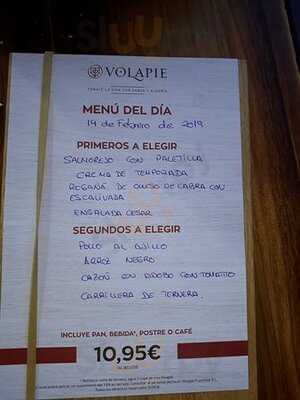 VOLAPIE
MENÚ DEL DÍA
14 de Febrero de 2019
PRIMEROS A ELEGIR
SALMOREJO CON PALETILLA
CREMA DE TEMPORADA
DE QUESO DE CABRA CON
ESCALIVADA
ENSALADA CESAR
SEGUNDOS A ELEGIR
POLLO AL AJILLO
ARROZ NEGRO
CAZÓN EN ADOBO CON TOMATITO
CARRILLERA DE TERNERA.
INCLUYE PAN, BEBIDA*, POSTRE O CAFÉ
10,95€